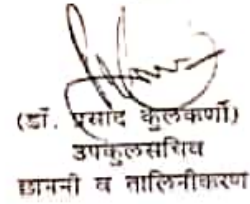 (डॉ. प्रसाद कुलकर्णी)
उपकुलसचिव
छाननी व तालिनीकरण